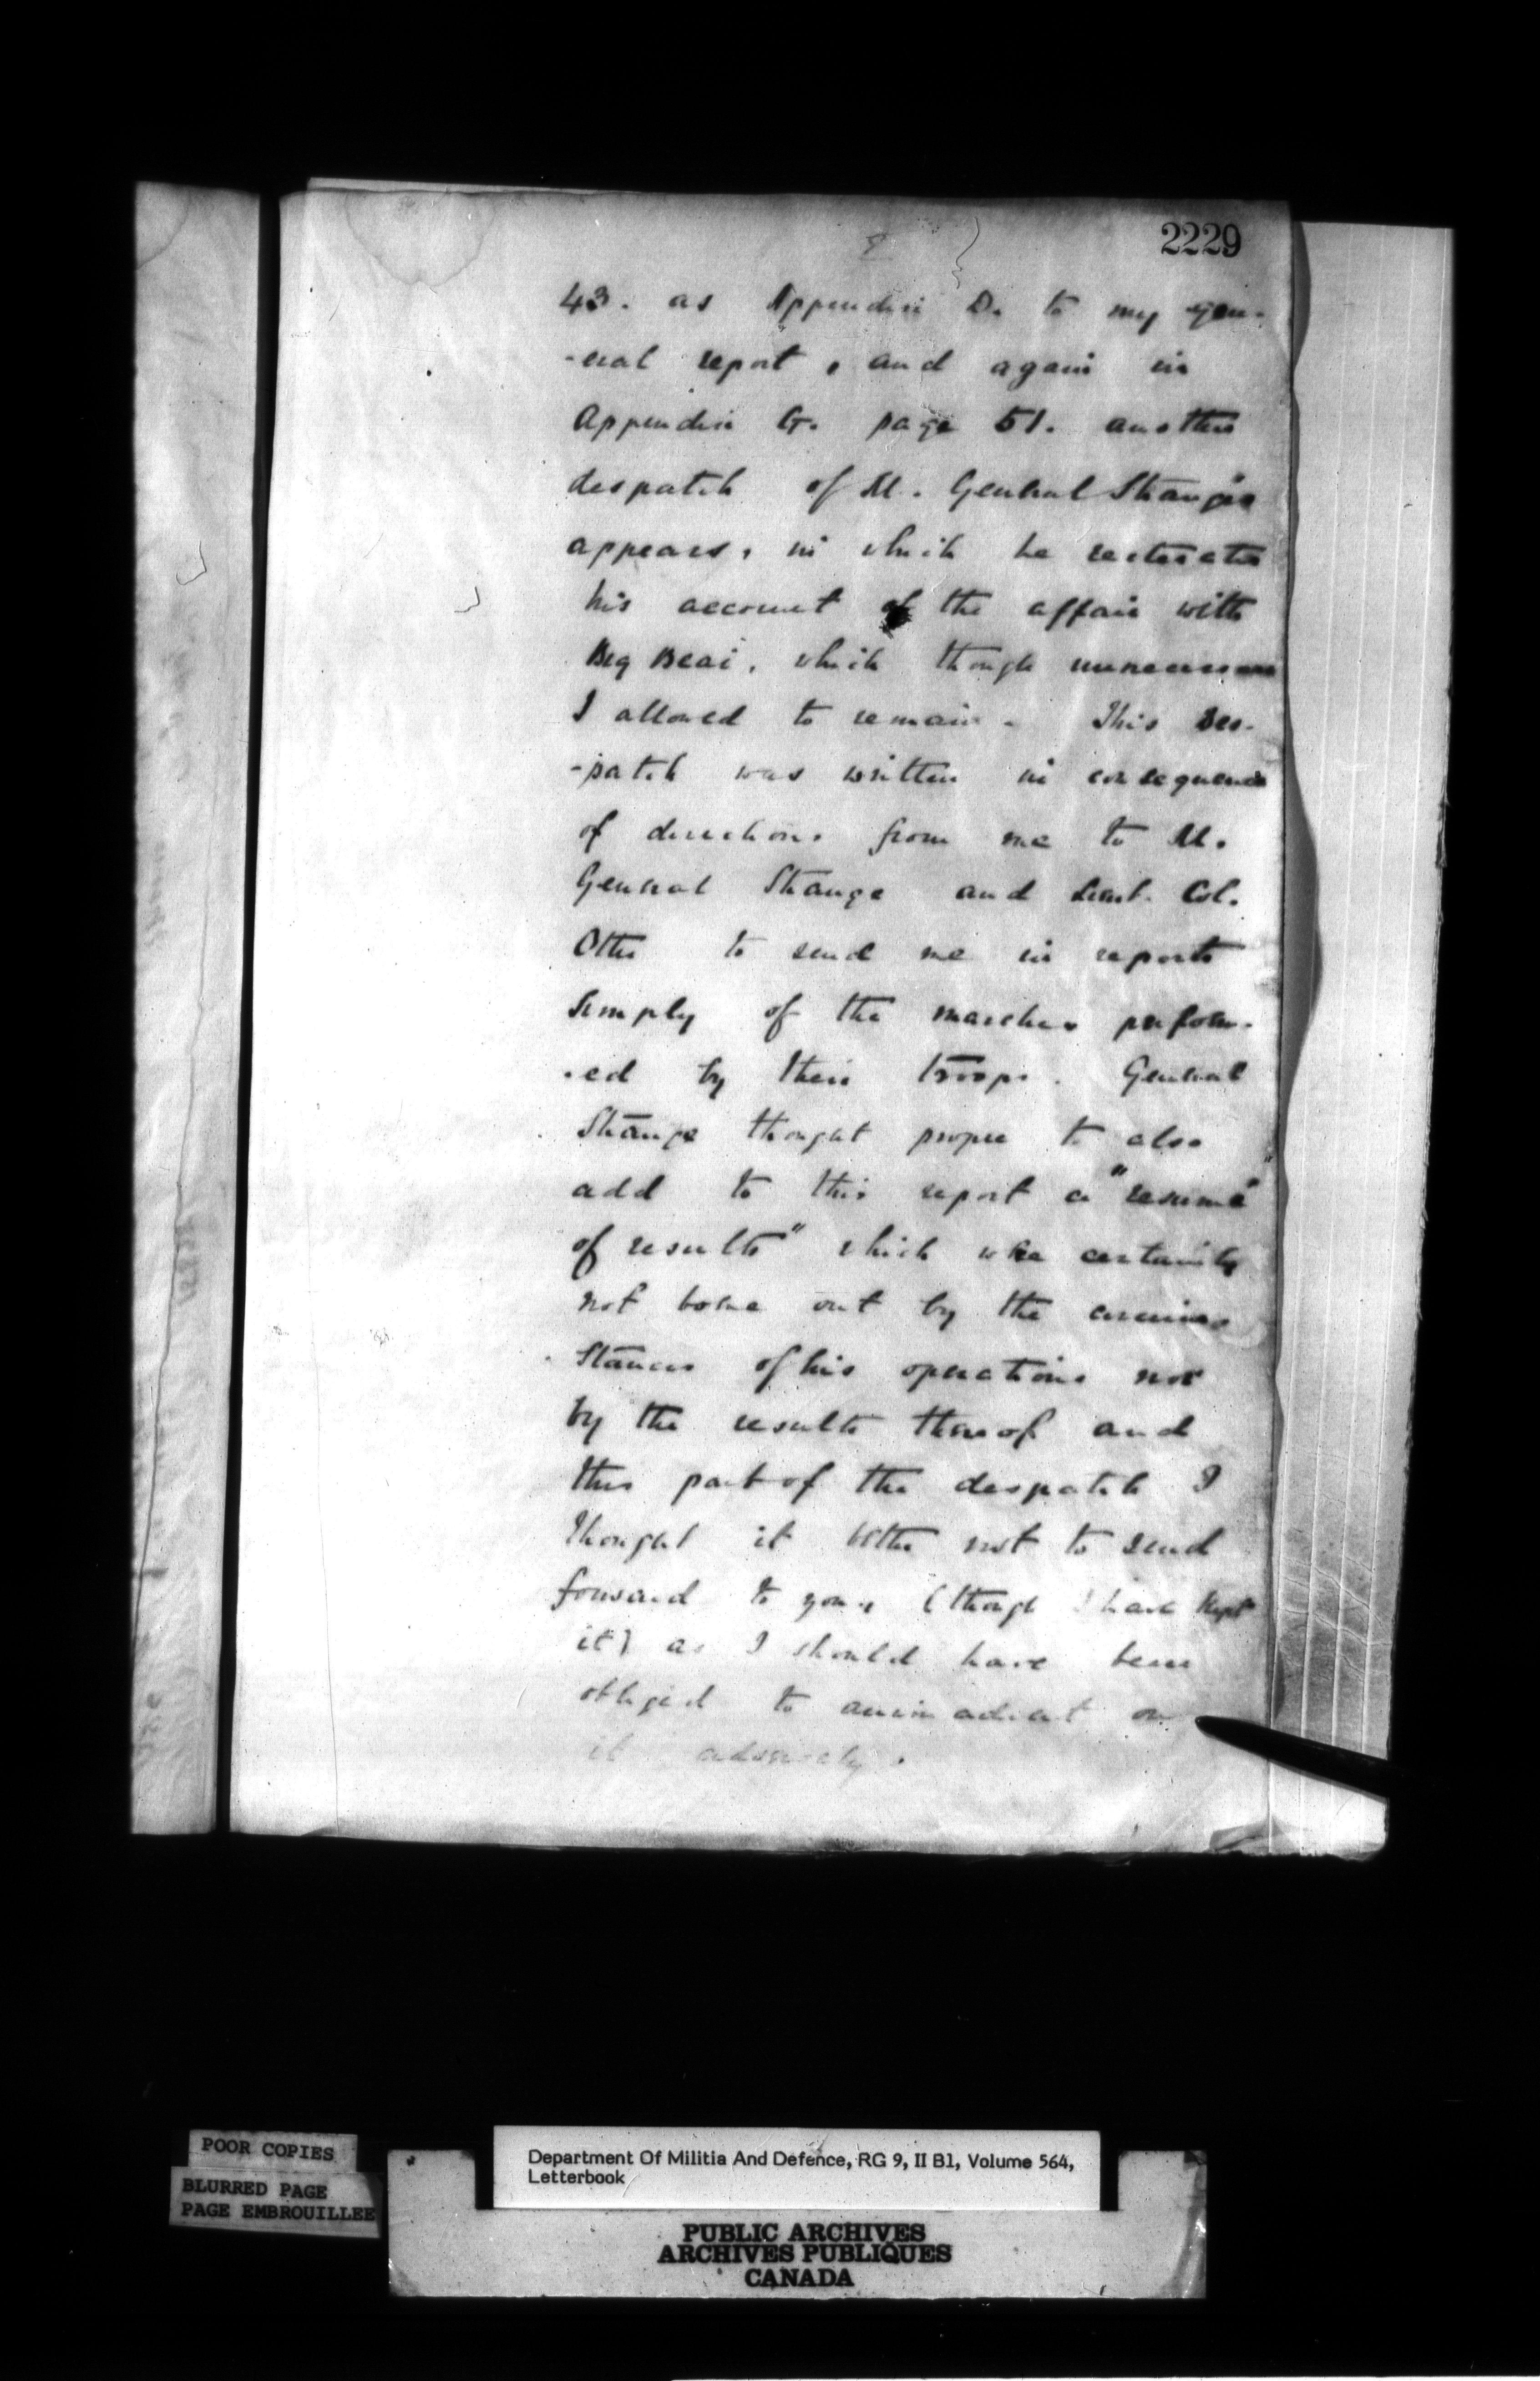 2229
43. as Appendix D. to my gen-
-eral report, and again in
Appendix G. page 51. another
despatch of M. General Strange's
appears, in which he reiterates
his account of the affair with
Big Bear, which though unnecessary
I allowed to remain. This Des-
-patch was written in consequence
of directions from me to M.
General Strange and Lieut. Col.
Otter to send me in reports
simply of the marches perform-
-ed by their troops. General
Strange thought proper to also
add to this report a "resumé
of results" which was certainly
not borne out by the circum-
stances of his operations nor
by the results thereof and
this part of the despatch I
thought it better not to send
forward to you, (though I have kept
it) as I should have been
obliged to animadvert on
it adversely.
POOR COPIES
BLURRED PAGE
PAGE EMBROUILLEE
Department Of Militia And Defence, RG 9, II B1, Volume 564,
Letterbook
PUBLIC ARCHIVES
ARCHIVES PUBLIQUES
CANADA